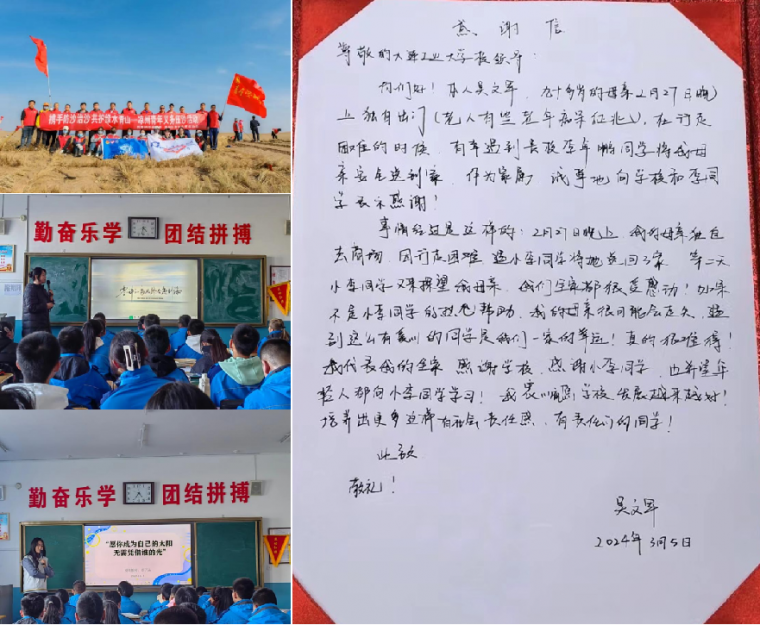 携手防沙治沙 共护绿水青山—凉州青年义务压沙活动
勤奋乐学 团结拼搏
勤奋乐学 团结拼搏
“愿你成为自己的太阳
无需凭借谁的光”
感谢信
尊敬的大连工业大学校领导：
你们好！本人吴文军，九十多岁的母亲2月27日晚
上独自出门（老人有些老年痴呆征兆），在行走
困难的时候，有幸遇到贵校李年鹏同学将我母
亲安全送到家。作为家属，诚挚地向学校和李同
学表示感谢！
事情经过是这样的：2月27日晚上，我的母亲独自
去商场，因行走困难，遇小李同学将她送回了家，第二天
小李同学又来探望我母亲，我们全家都很是感动！如果
不是小李同学的热心帮助，我的母亲很可能会走失，遇
到这么有爱心的同学是我们一家的幸运！真的很难得！
我代表我的全家，感谢学校，感谢小李同学，也希望年
轻人都向小李同学学习！我衷心 学校发展越来越好！
培养出更多这样有社会责任感、有责任心的同学！
此致
敬礼！
吴文军
2024年3月5日